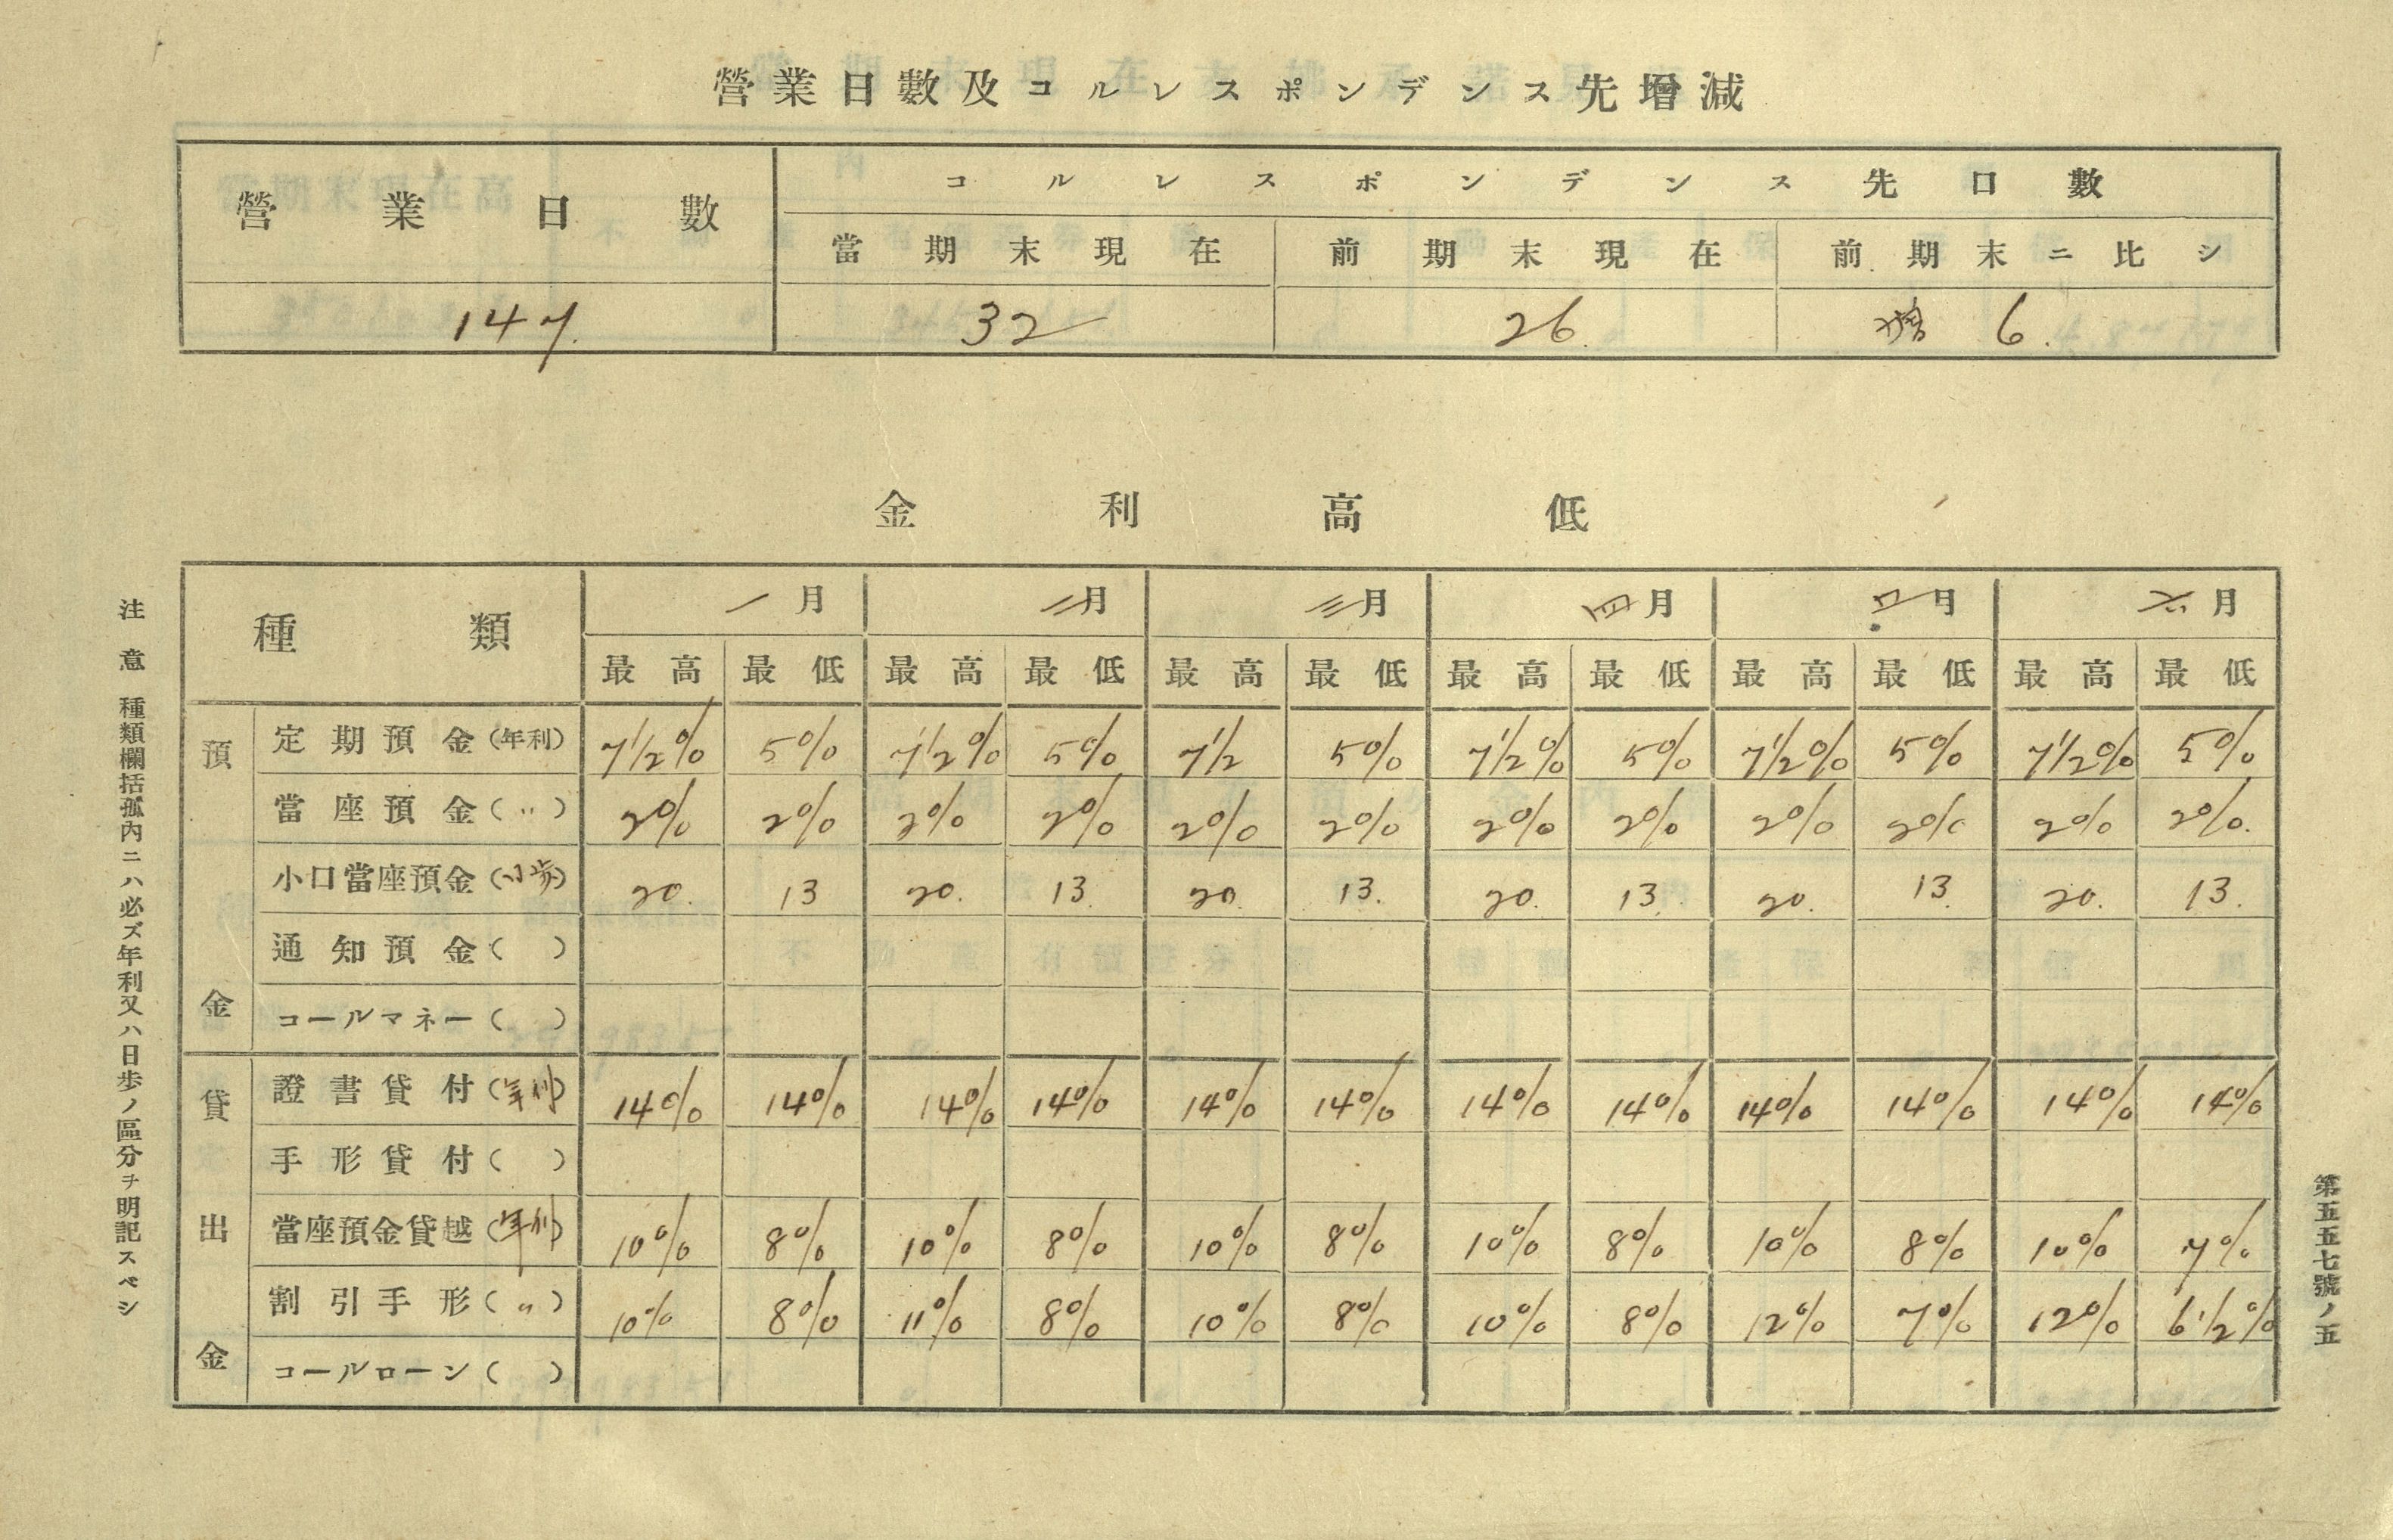 營業日數及コルレスポンデンス先增減
營業日數 コルレスポンデンス先口數
當期末現在 前期末現在 前期末ニ比シ
147. 32 26. 增 6.
金利高低
種類 一月 二月 三月 四月 五月 六月
最高 最低 最高 最低 最高 最低 最高 最低 最高 最低 最高 最低
預金
定期預金(年利) 7 1/2% 5% 7 1/2% 5% 7 1/2 5% 7 1/2% 5% 7 1/2% 5% 7 1/2% 5%
當座預金(〃) 2% 2% 2% 2% 2% 2% 2% 2% 2% 2% 2% 2%.
小口當座預金(日歩) 20. 13 20. 13. 20. 13. 20. 13. 20. 13. 20. 13.
通知預金( )
コールマネー( )
貸出金
證書貸付(年利) 14% 14% 14% 14% 14% 14% 14% 14% 14% 14% 14% 14%
手形貸付( )
當座預金貸越(年利) 10% 8% 10% 8% 10% 8% 10% 8% 10% 8% 10% 7%
割引手形(〃) 10% 8% 11% 8% 10% 8% 10% 8% 12% 7% 12% 6 1/2%
コールローン( )
注意 種類欄括孤内ニハ必ズ年利又ハ日歩ノ區分ヲ明記スベシ
第五五七號ノ五